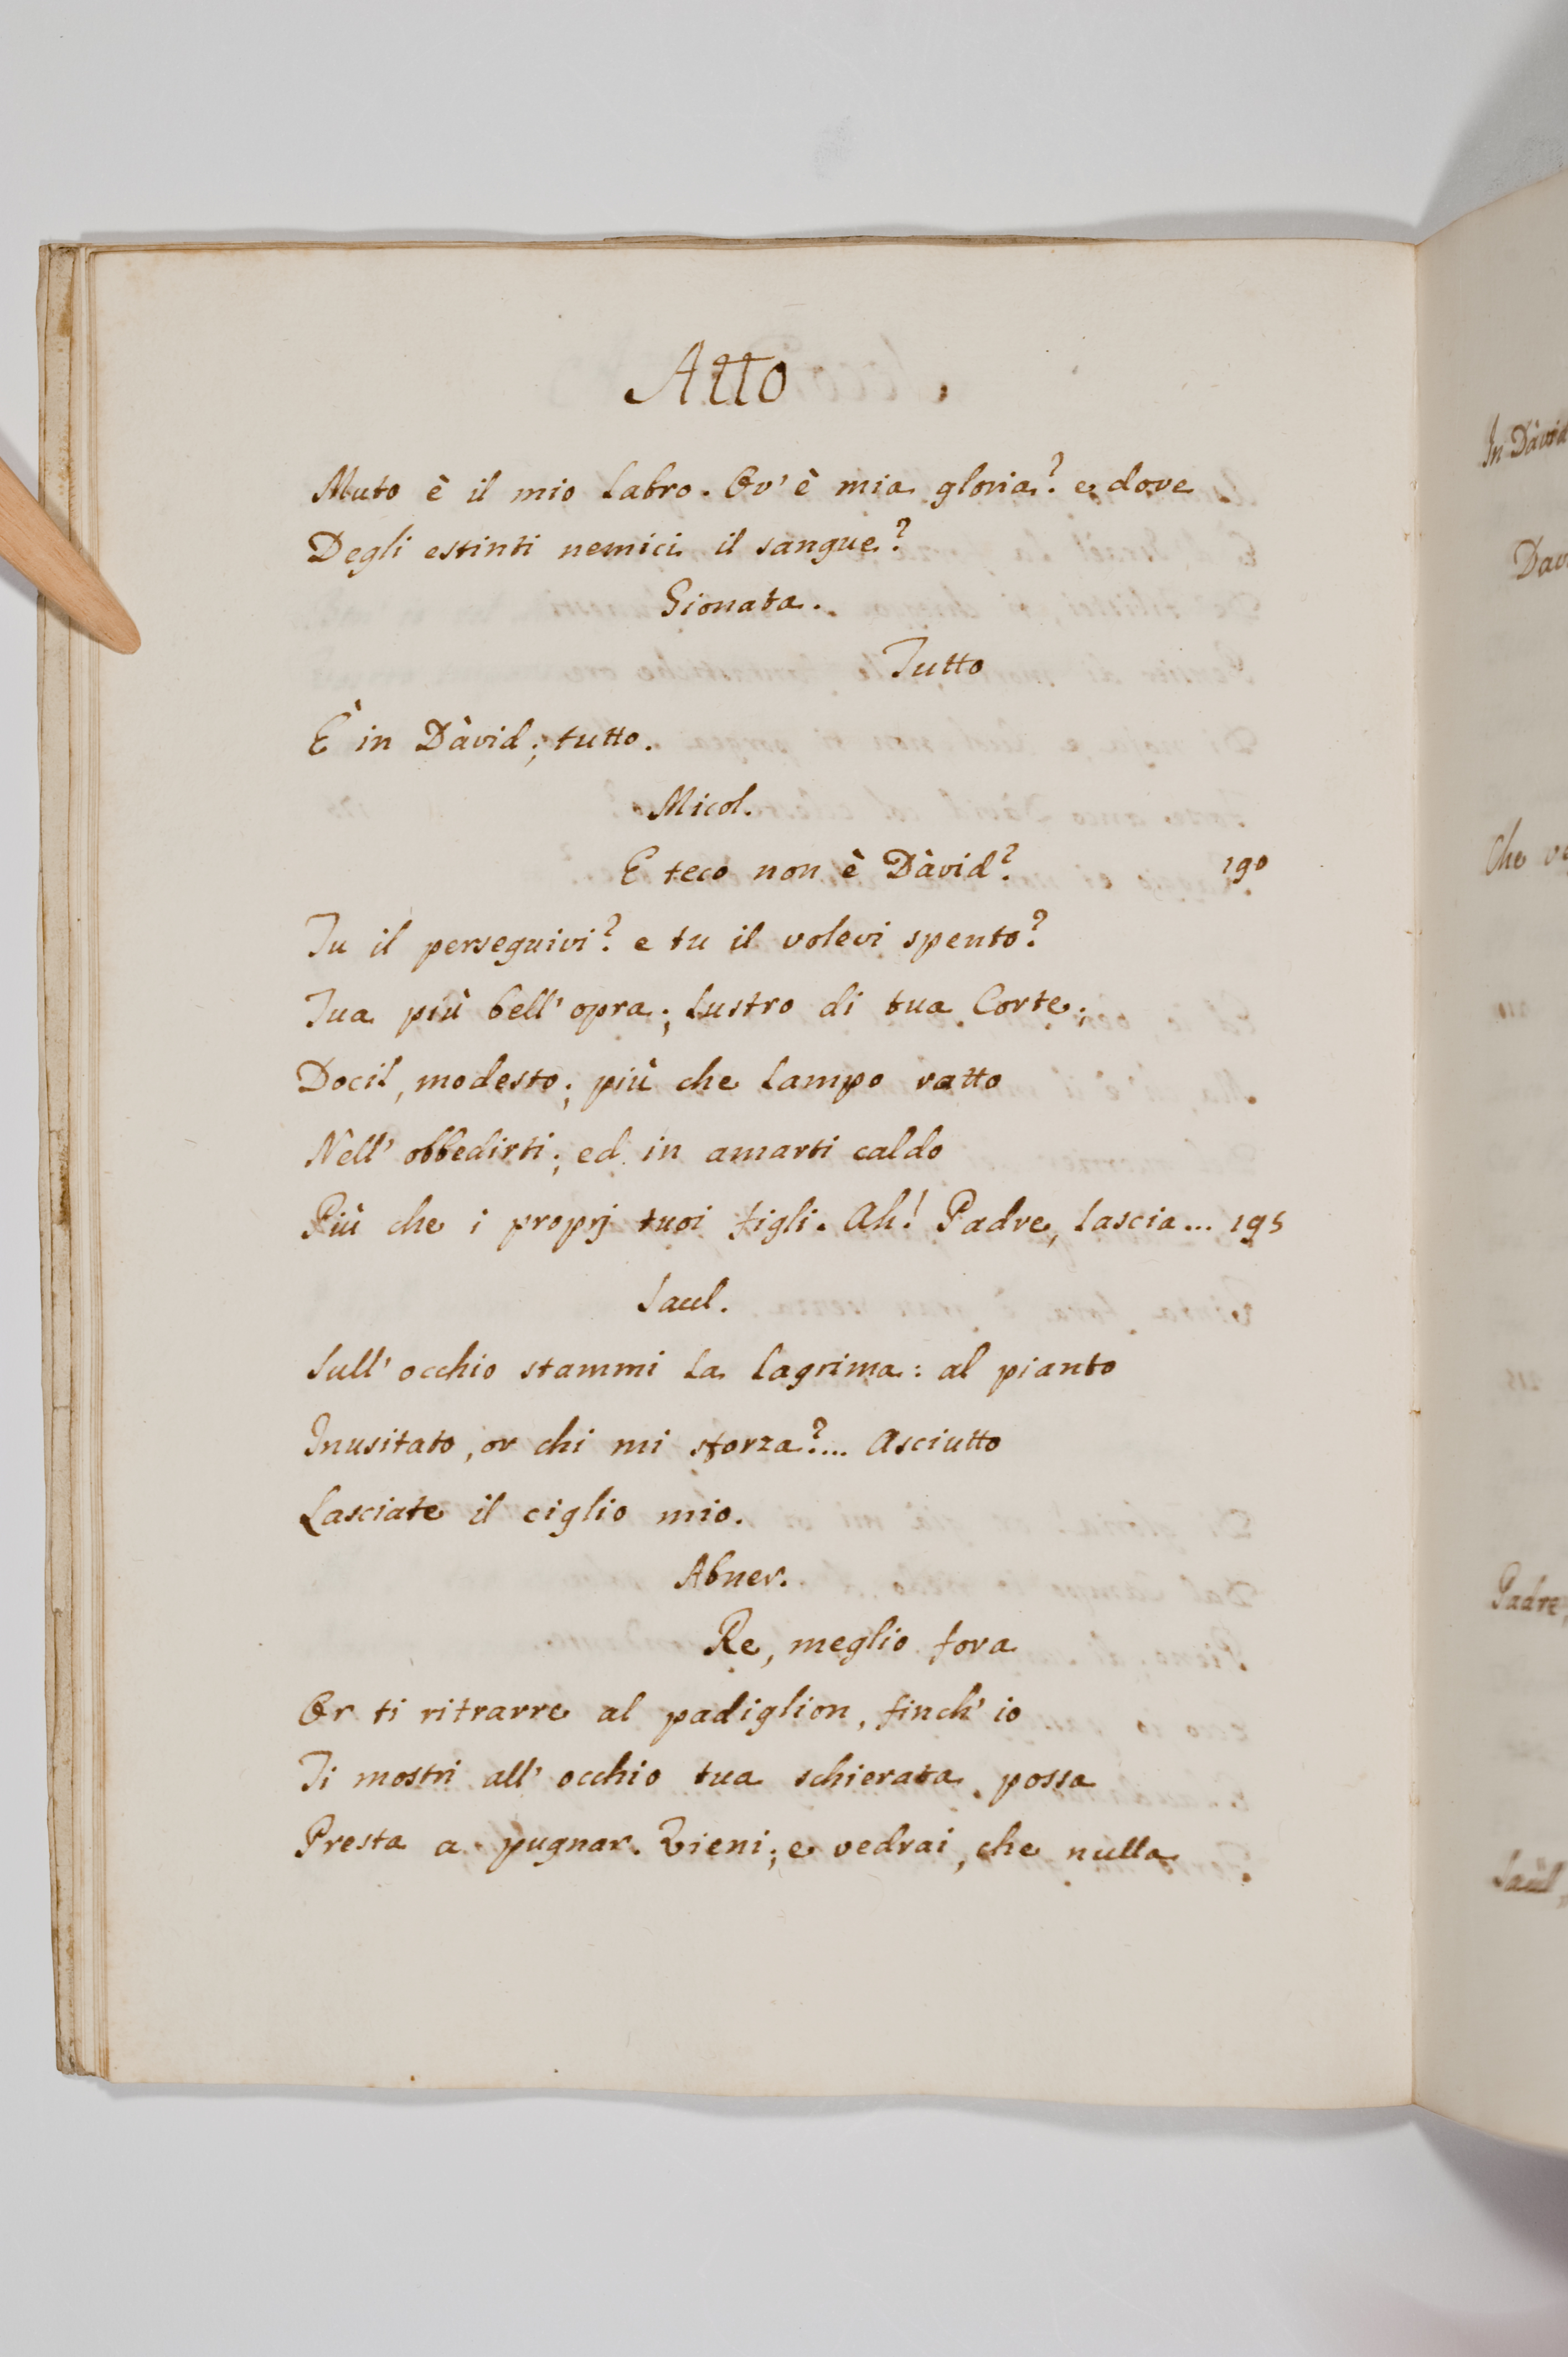 Atto
Muto è il mio labro. Ov' è mia gloria? e dove
Degli estinti nemici il sangue?
Gionata.
Tutto
È in Dàvid; tutto.
Micol.
E teco non è Dàvid? 190
Tu il perseguivi? e tu il volevi spento?
Tua più bell' opra; lustro di tua Corte;
Docil, modesto; più che lampo ratto
Nell' obbedirti; ed in amarti caldo
Più che i proprj tuoi figli. Ah! Padre, lascia... 195
Saul.
Sull' occhio stammi la lagrima: al pianto
Inusitato, or chi mi sforza?... Asciutto
Lasciate il ciglio mio.
Abner.
Re, meglio fora
Or ti ritrarre al padiglion, finch' io
Ti mostri all' occhio tua schierata possa
Presta a pugnar. Vieni; e vedrai, che nulla
In Dàvid
Padre,